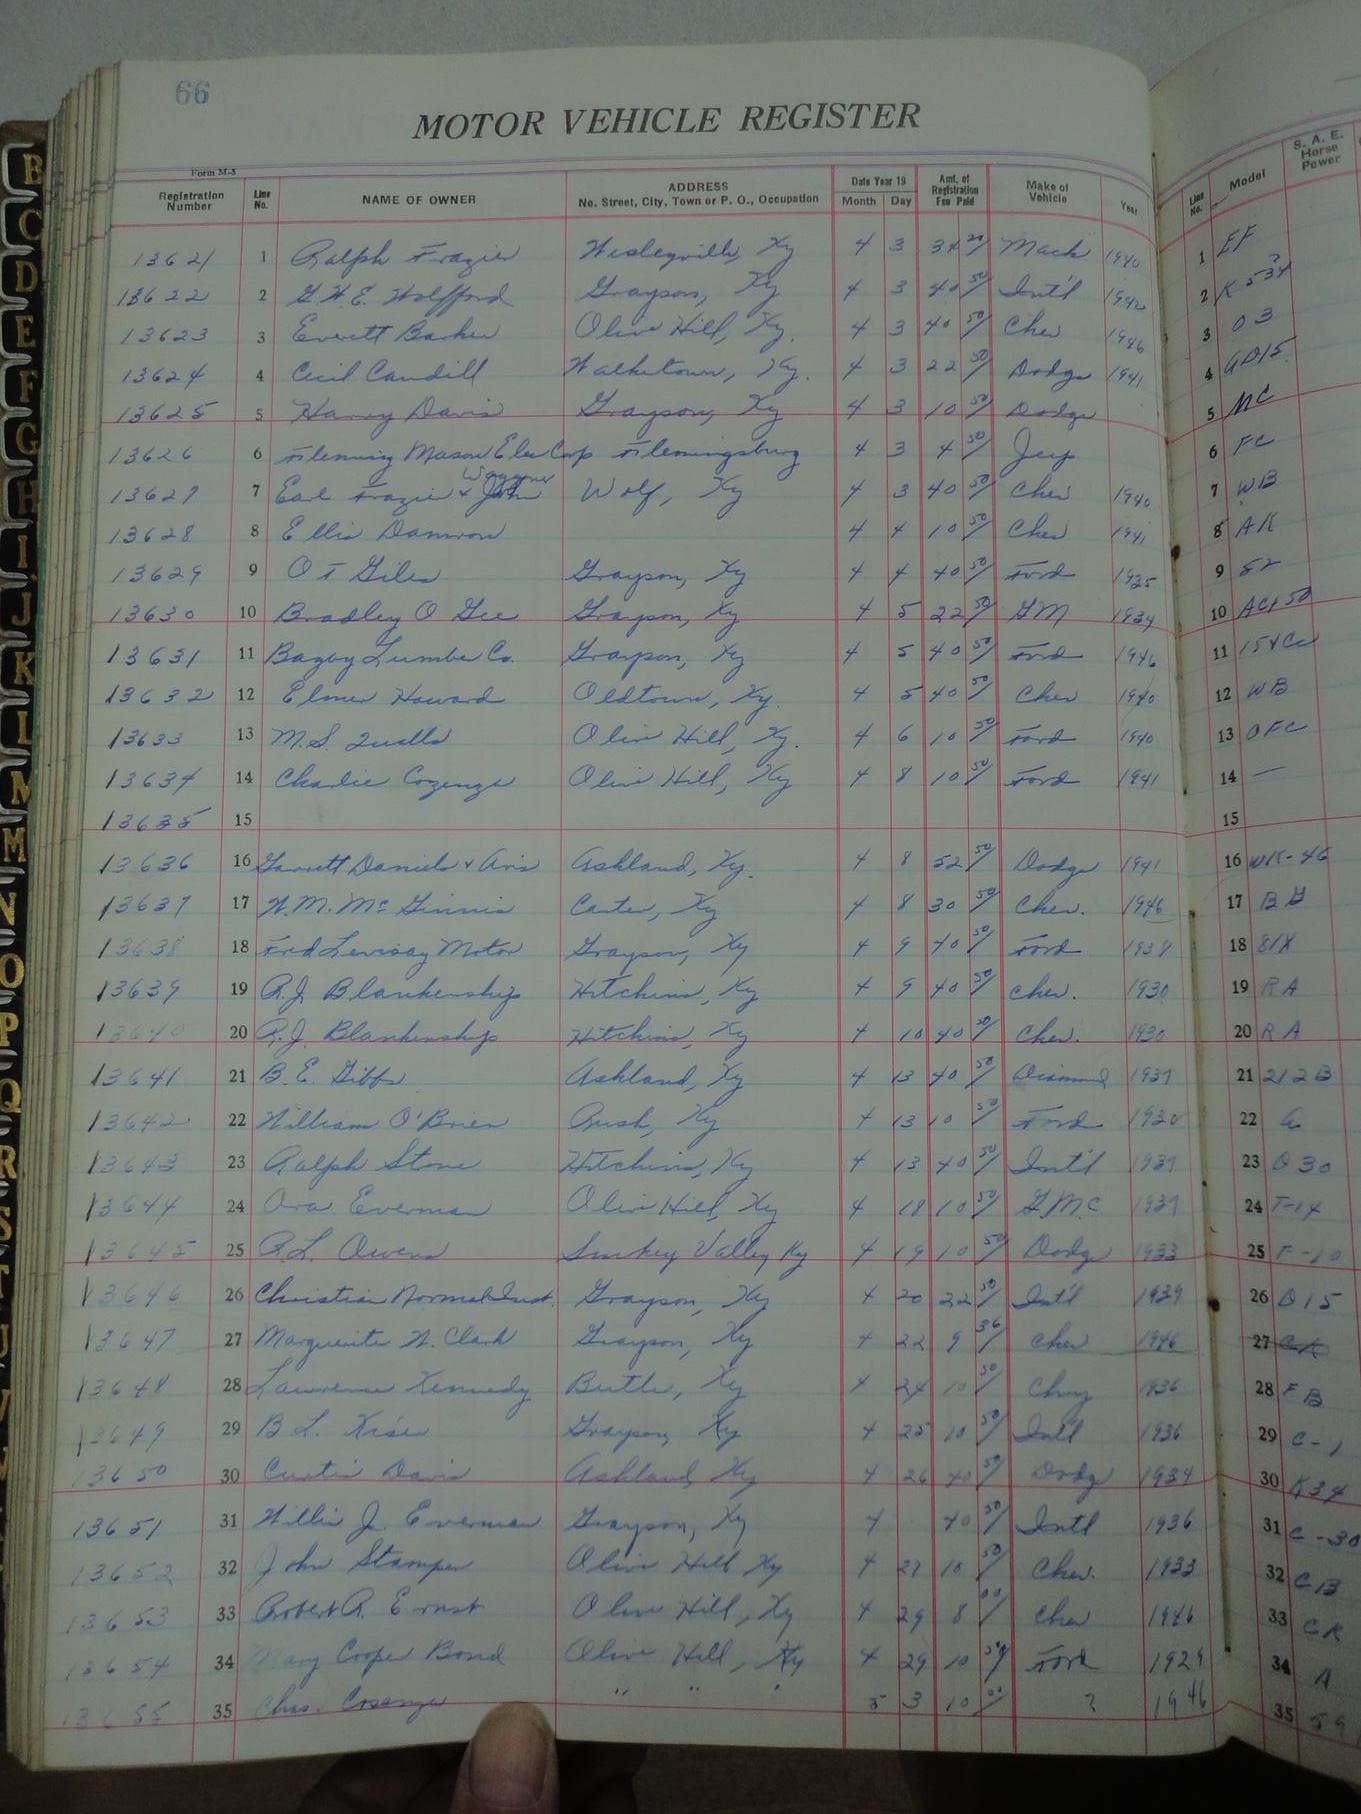 66
MOTOR VEHICLE REGISTER
Form M-5
Registration Number Line No. NAME OF OWNER ADDRESS No. Street, City, Town or P. O., Occupation Date Year 19 Month Day Amt. of Registration Fee Paid Make of Vehicle Year Line No. Model S. A. E. Horse Power
13621 1 Ralph Frazier Wesleyville, Ky 4 3 Mack 1940 1 EF
13622 2 G.W.E. Wolfford Grayson, Ky 4 3 40 50/ Int'l 1942 2
13623 3 Everett Barker Olive Hill, Ky. 4 3 40 50/ Chev 1946 3 O3
13624 4 Cecil Caudill Ky. 4 3 22 50/ Dodge 1941 4
13625 5 Harry Davis Grayson, Ky 4 3 10 50/ Dodge 5 MC
13626 6 Fleming Mason Elec Corp Flemingsburg 4 3 4 50/ Jeep 6 FC
13627 7 Earl Frazier & John Waggoner Wolf, Ky 4 3 40 50/ Chev 1940 7 WB
13628 8 Ellis Damron 4 4 10 50/ Chev 1941 8 AK
13629 9 O T Giles Grayson, Ky 4 4 40 50/ Ford 1935 9 52
13630 10 Bradley O Gee Grayson, Ky 4 5 22 50/ GM 1934 10
13631 11 Bagby Lumber Co. Grayson, Ky 4 5 40 50/ Ford 1946 11
13632 12 Elmer Howard Oldtown, Ky. 4 5 40 50/ Chev 1940 12 WB
13633 13 M.S. Qualls Olive Hill, Ky. 4 6 10 50/ Ford 1940 13 OFC
13634 14 Charlie Cozenza Olive Hill, Ky 4 8 10 50/ Ford 1941 14 —
13635 15 15
13636 16 Garrett Daniels & Avis Ashland, Ky. 4 8 52 50/ Dodge 1941 16 WK-46
13637 17 W.M. McGinnis Carter, Ky 4 8 30 50/ Chev. 1946 17
13638 18 Ford Levisay Motor Grayson, Ky 4 9 40 50/ Ford 1938 18 81X
13639 19 R.J. Blankenship Hitchins, Ky 4 9 40 50/ Chev. 1930 19 RA
13640 20 R.J. Blankenship Hitchins, Ky 4 10 40 50/ Chev. 1930 20 RA
13641 21 B.E. Gibbs Ashland, Ky 4 13 40 50/ Diamond 1937 21 212B
13642 22 William O'Brien Rush, Ky 4 13 10 50/ Ford 1930 22
13643 23 Ralph Stone Hitchins, Ky 4 13 40 50/ Int'l 1937 23 D30
13644 24 Ora Everman Olive Hill, Ky 4 18 10 50/ G.M.C 1937 24 T-14
13645 25 R.L. Owens Smokey Valley Ky 4 19 10 50/ Dodge 1933 25 F-10
13646 26 Christian Normal Inst. Grayson, Ky 4 20 22 50/ Int'l 1939 26 D15
13647 27 Marguerite W. Clark Grayson, Ky 4 22 9 36/ Chev 1946 27 CK
13648 28 Lawrence Kennedy Ky 4 24 10 50/ 1936 28 FB
13649 29 B L. Kiser Grayson, Ky 4 25 10 50/ Int'l 1936 29 C-1
13650 30 Curtis Davis Ashland, Ky 4 26 40 50/ Dodg 1934 30 K34
13651 31 Willis J. Everman Grayson, Ky 4 40 50/ Intl 1936 31 C-30
13652 32 John Stamper Olive Hill Ky 4 27 10 50/ Chev. 1933 32 CB
13653 33 Robert R. Ernst Olive Hill, Ky 4 29 8 00/ Chev 1946 33 CK
13654 34 Mary Cooper Bond Olive Hill, Ky 4 29 10 50/ Ford 1929 34 A
13655 35 Chas. " " " 5 3 10 ? 1946 35
B
C
D
E
F
G
H
I
J
K
L
M
M
N
O
P
Q
R
S
T
U
V